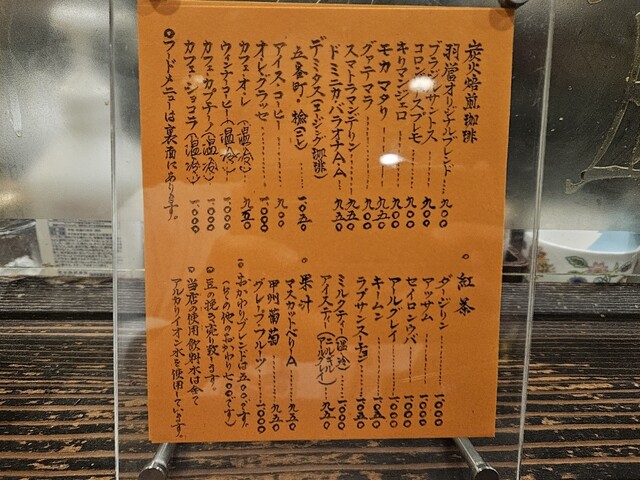 炭火焙煎珈琲
羽當オリジナルブレンド 九〇〇
ブラジルサントス 九〇〇
コロンビアスプレモ 九〇〇
キリマンジェロ 九〇〇
モカマタリ 九五〇
グァテマラ 九〇〇
スマトラマンデリン 九五〇
ドミニカ・バラオナA・A 九五〇
デミタス(エージング珈琲)
アイス・コーヒー 九〇〇
オ・レ・グラッセ 一〇〇〇
カフェ・オ・レ(温・冷) 九五〇
ウィンナ・コーヒー(温・冷) 一〇〇〇
カフェ・カプチーノ(温・冷) 一〇〇〇
カフェ・ショコラ(温・冷) 一〇〇〇
◎フードメニューは裏面にあります。
○紅茶
ダージリン 一〇〇〇
アッサム 一〇〇〇
セイロンウバ 一〇〇〇
アールグレイ 一〇〇〇
キームン 一〇五〇
ラプサンスーチョン 一〇五〇
ミルクティー(温・冷) 一〇〇〇
アイスティー 九五〇
○果汁
マスカットベリーA 九五〇
甲州葡萄 九五〇
グレープフルーツ 一〇〇〇
○おかわりブレンドは五〇〇です。
(その他のおかわり六〇〇です)
◎豆の挽き売り致します。
◎当店の使用飲料水は全て
アルカリイオン水を使用しています。